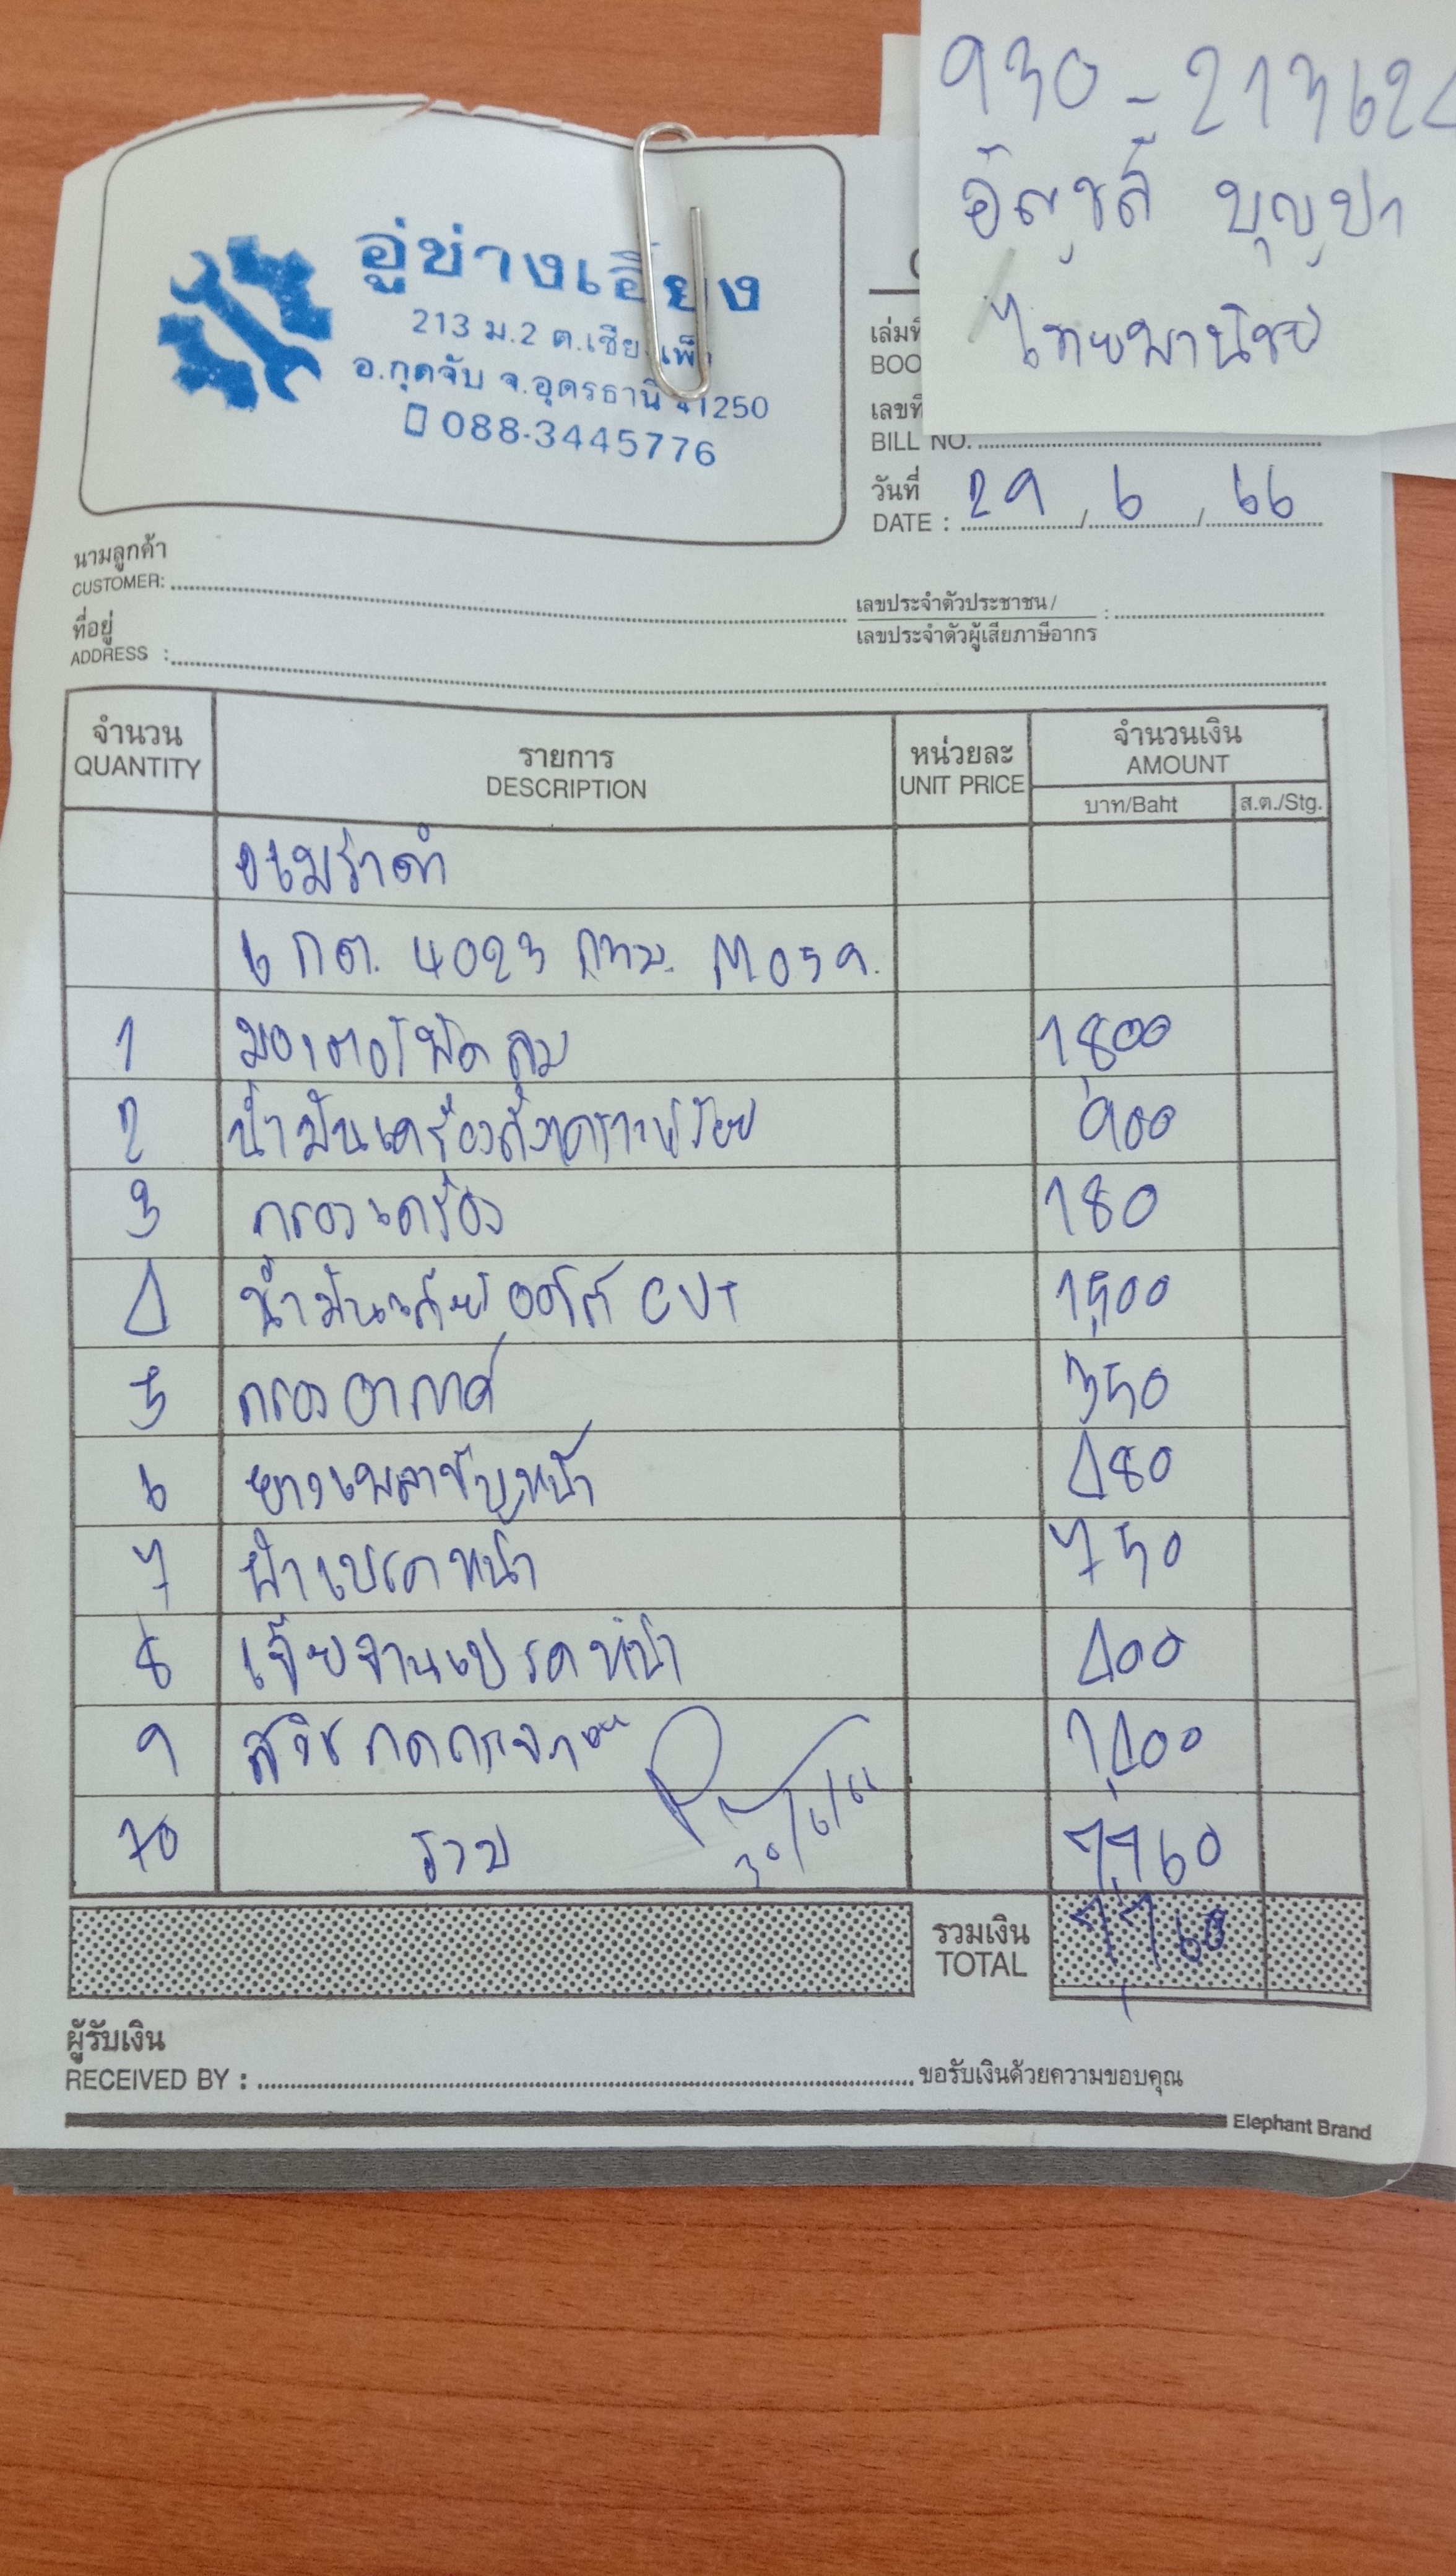 930-21362
อัญชลี บุญปา
ไทยพานิชย์
อู่ช่างเอี่ยง
213 ม.2 ต.เชียงเพ็ง
อ.กุดจับ จ.อุดรธานี 41250
088-3445776
เล่มที่
BOO
เลขที่
BILL NO.
วันที่
DATE : 29 / 6 / 66
นามลูกค้า
CUSTOMER:
ที่อยู่
ADDRESS :
เลขประจำตัวประชาชน /
เลขประจำตัวผู้เสียภาษีอากร :
จำนวน รายการ หน่วยละ จำนวนเงิน
QUANTITY DESCRIPTION UNIT PRICE AMOUNT
บาท/Baht ส.ต./Stg.
อเมร่าดำ
6 กต. 4023 กทม. M059.
1 มอเตอร์พัดลม 1,800
2 น้ำมันเครื่องสังเคราะห์ 900
3 กรองเครื่อง 180
4 น้ำมันเกียร์ออโต้ CVT 1,500
5 กรองอากาศ 350
6 ยางเพลาขับหน้า 480
7 ผ้าเบรคหน้า 750
8 เจียจานเบรคหน้า 400
9 สวิชกดกระจก 1,400
10 รวม 7,760
30/6/66
รวมเงิน
TOTAL 7,760
ผู้รับเงิน
RECEIVED BY : ขอรับเงินด้วยความขอบคุณ
Elephant Brand